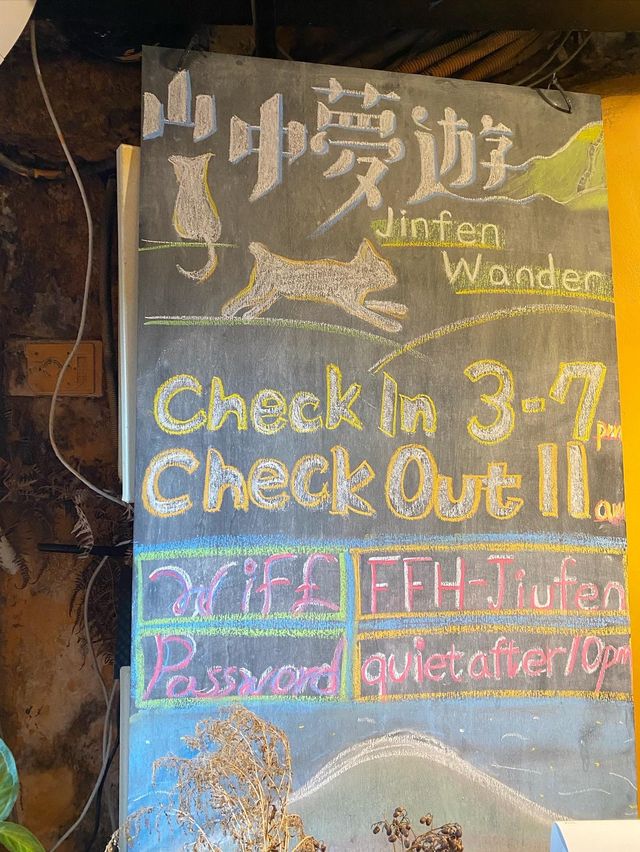 山中夢遊
Jinfen
Wander
Check In 3-7 pm
Check Out 11 am
WiFi FFH-Jiufen
Password quietafter10pm